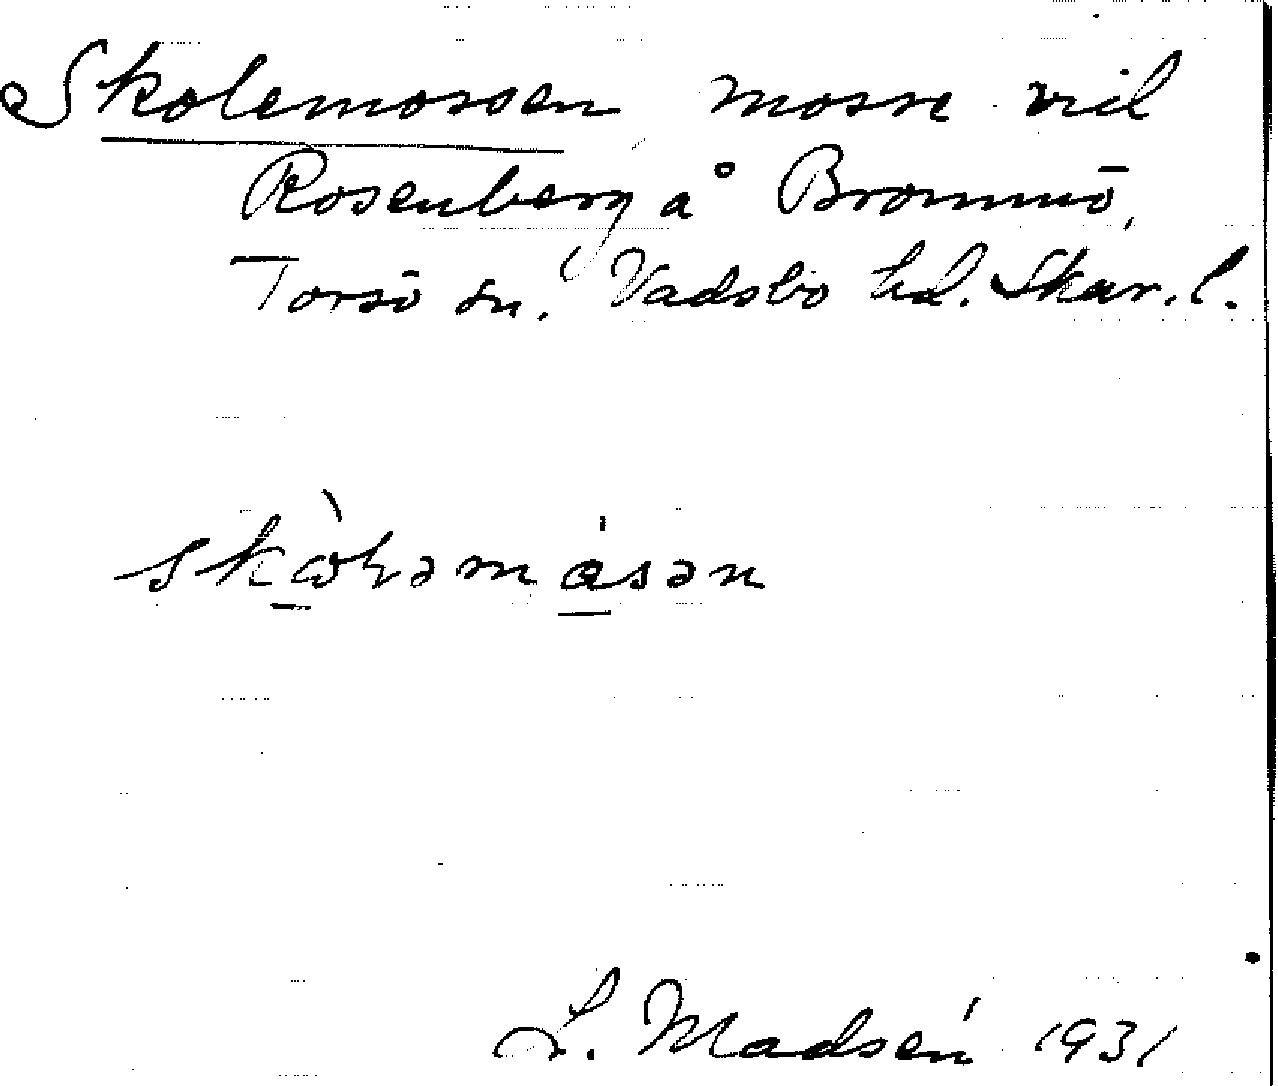 Skolemossen, mosse vid
Rosenberg å Brommö,
Torsö sn, Vadsbo hd. Skar. l.
skὼɫəmåsən
L. Madsén 1931